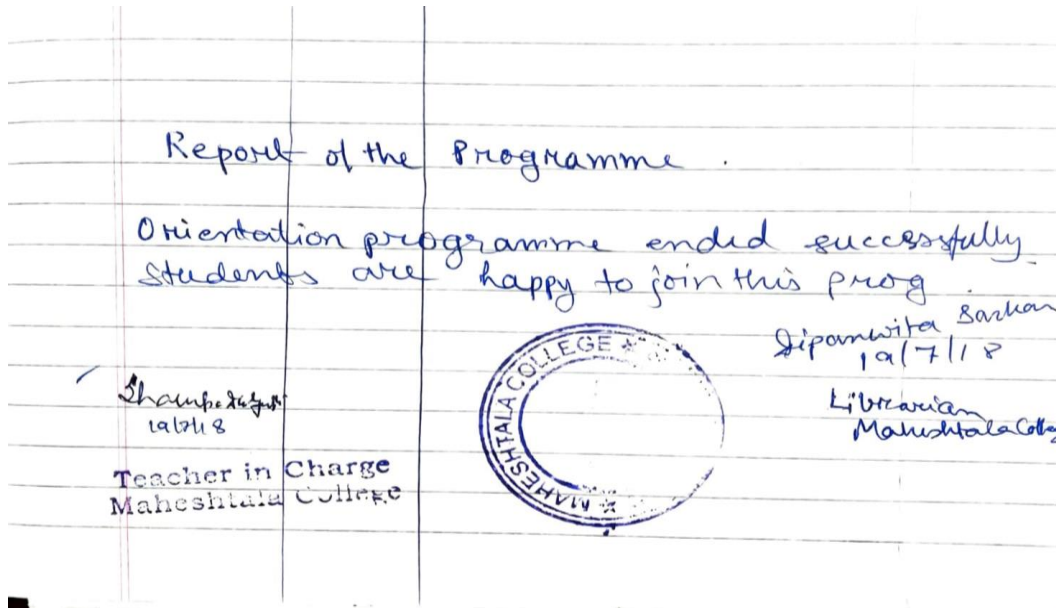 Report of the Programme .
Orientation programme ended successfully
students are happy to join this prog .
Dipanwita Sarkar
19/7/18
Librarian
Maheshtala
19/7/18
Teacher in Charge
Maheshtala College
MAHESHTALA COLLEGE